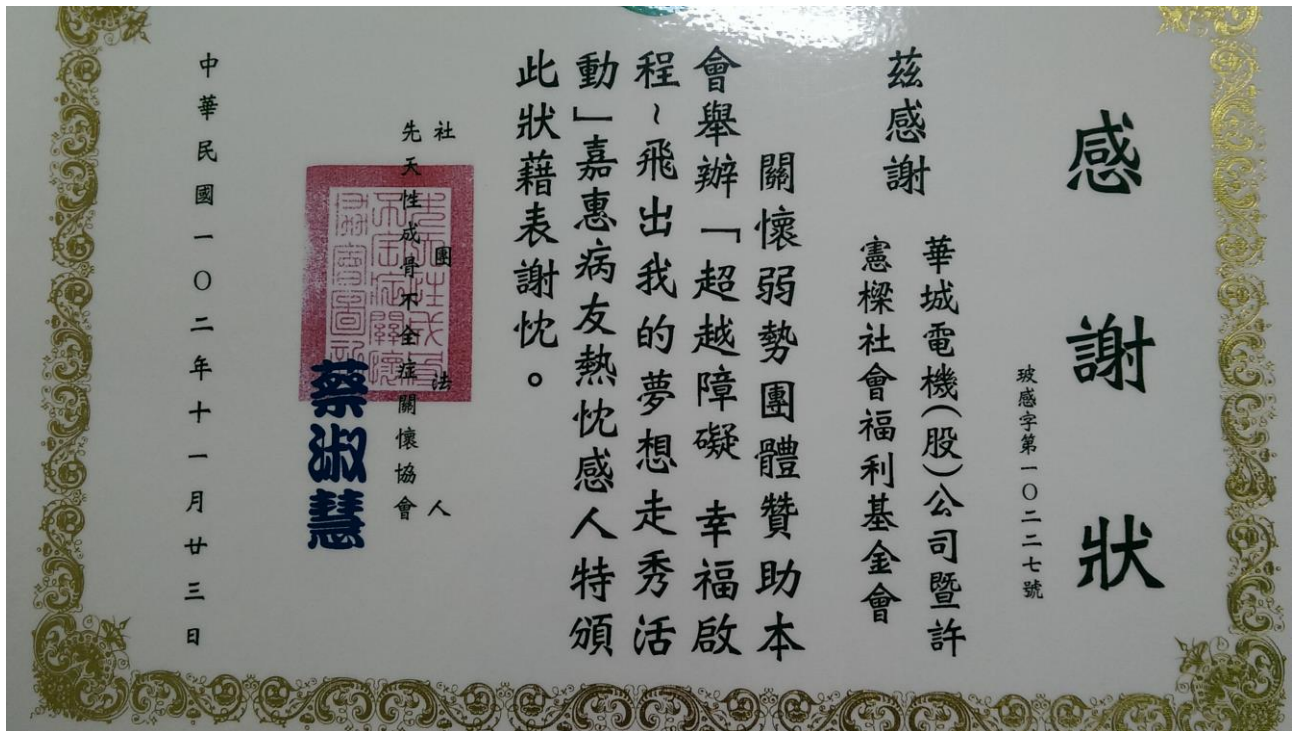 感謝狀
玻感字第一○二二七號
茲感謝
華城電機(股)公司暨許
憲樑社會福利基金會
關懷弱勢團體贊助本
會舉辦「超越障礙 幸福啟
程~飛出我的夢想走秀活
動」嘉惠病友熱忱感人特頒
此狀藉表謝忱。
社團法人
先天性成骨不全症關懷協會
蔡淑慧
中華民國一○二年十一月廿三日